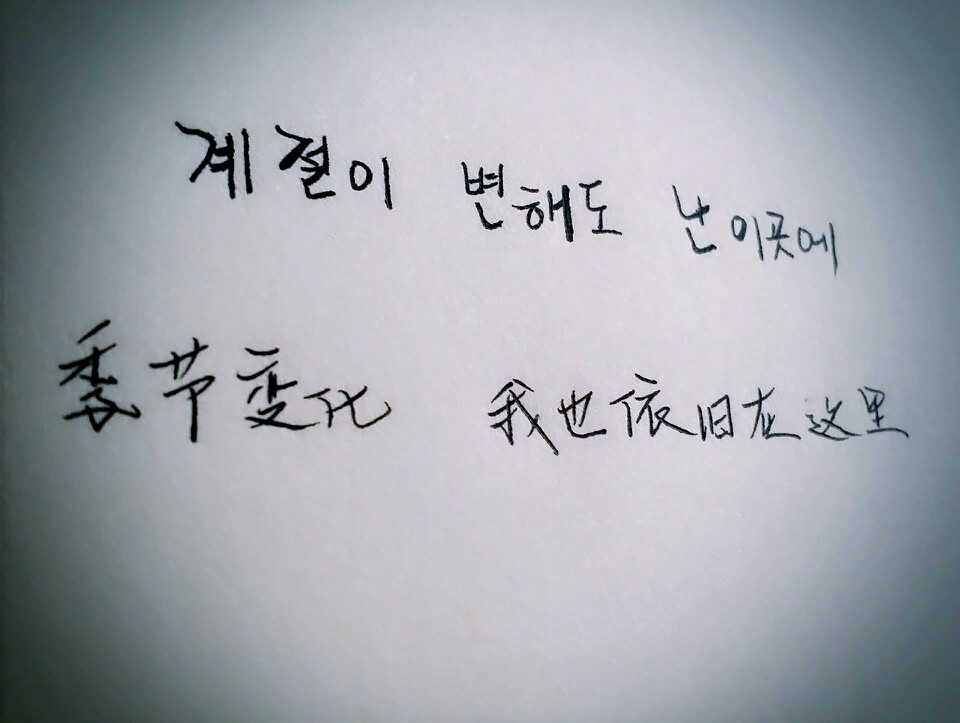 계절이 변해도 난 이곳에
季节变化 我也依旧在这里